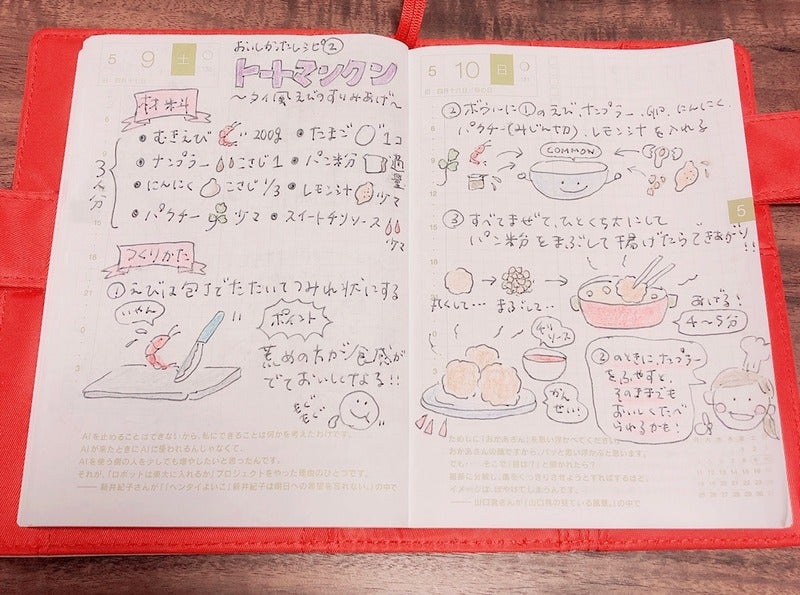 5 9 土
おいしかったレシピ②
トートマンクン
〜タイ風えびのすりみあげ〜
材料
3人分
むきえび 200g
たまご 1コ
ナンプラー 小さじ1
パン粉 適量
にんにく 小さじ1/3
レモン汁 少々
パクチー 少々
スイートチリソース 少々
つくりかた
①えびは包丁でたたいてつみれ状にする
いやん
ポイント
荒めの方が食感が
でておいしくなる!!
もぐもぐ
AIを止めることはできないから、私にできることは何かを考えたわけです。
AIが来たときにAIに使われるんじゃなくて、
AIを使う側の人を少しでも増やしたいと思ったんです。
それが、「ロボットは東大に入れるか」プロジェクトをやった理由のひとつです。
――新井紀子さんが『「ヘンタイよいこ」新井紀子は明日への希望を忘れない。』の中で
5 10 日
②ボウルに①のえび、ナンプラー、卵、にんにく、
パクチー(みじん切り)、レモン汁を入れる
COMMON
5
③すべてまぜて、ひとくち大にして
パン粉をまぶして揚げたらできあがり!!
丸くして…
まぶして…
あげる!
4〜5分
チリソース
かんせい!
②のときに、ナンプラー
をふやすと、
そのままでも
おいしくたべ
られるかも!
ためしに「おかあさん」を思い浮かべてください。
おかあさんの顔ですから、パッと思い浮かぶと思います。